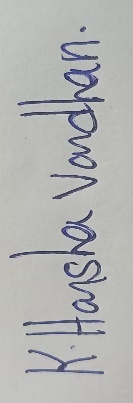 K. Harsha Vardhan.